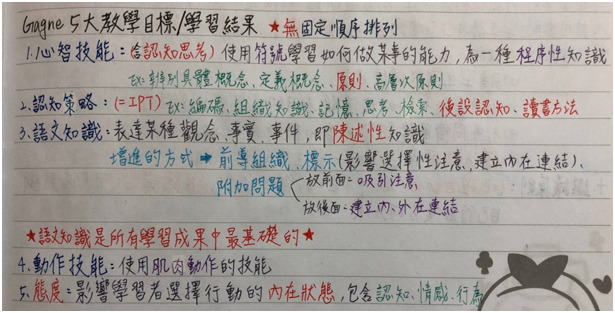 Gagne 5大教學目標/學習結果 ★無固定順序排列
1.心智技能:(含認知思考)使用符號學習如何做某事的能力,為一種程序性知識
Ex:辨別具體概念、定義概念、原則、高層次原則
2.認知策略:(=IPT) Ex:編碼、組織知識、記憶、思考、檢索、後設認知、讀書方法
3.語文知識:表達某種觀念、事實、事件,即陳述性知識
增進的方式➡前導組織、標示(影響選擇性注意、建立內在連結)、
附加問題
放前面=吸引注意
放後面=建立內、外在連結
★語文知識是所有學習成果中最基礎的★
4.動作技能:使用肌肉動作的技能
5.態度:影響學習者選擇行動的內在狀態,包含認知、情感、行為